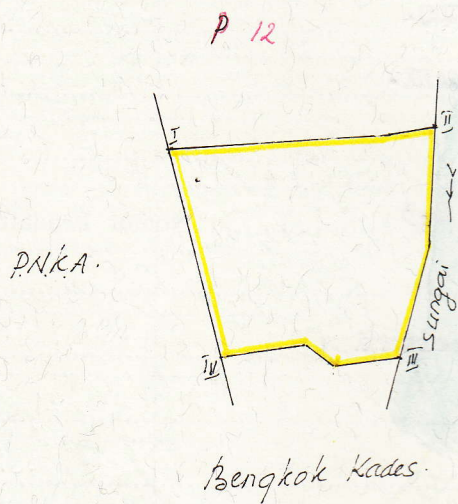 P 12
I
II
P.N.K.A.
Sungai
IV
III
Bengkok Kades.